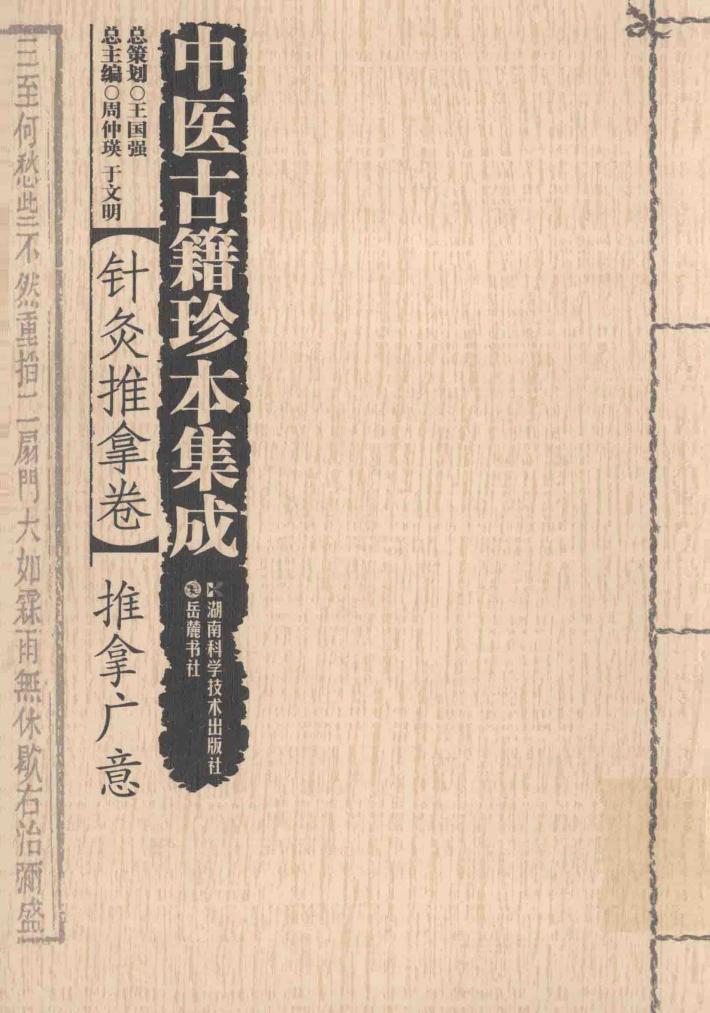 中医古籍珍本集成
湖南科学技术出版社
岳麓书社
总策划○王国强
总主编○周仲瑛 于文明
【针灸推拿卷】
推拿广意
三至何愁些不然重掐二扇門大如霖雨無休歇右治彌盛